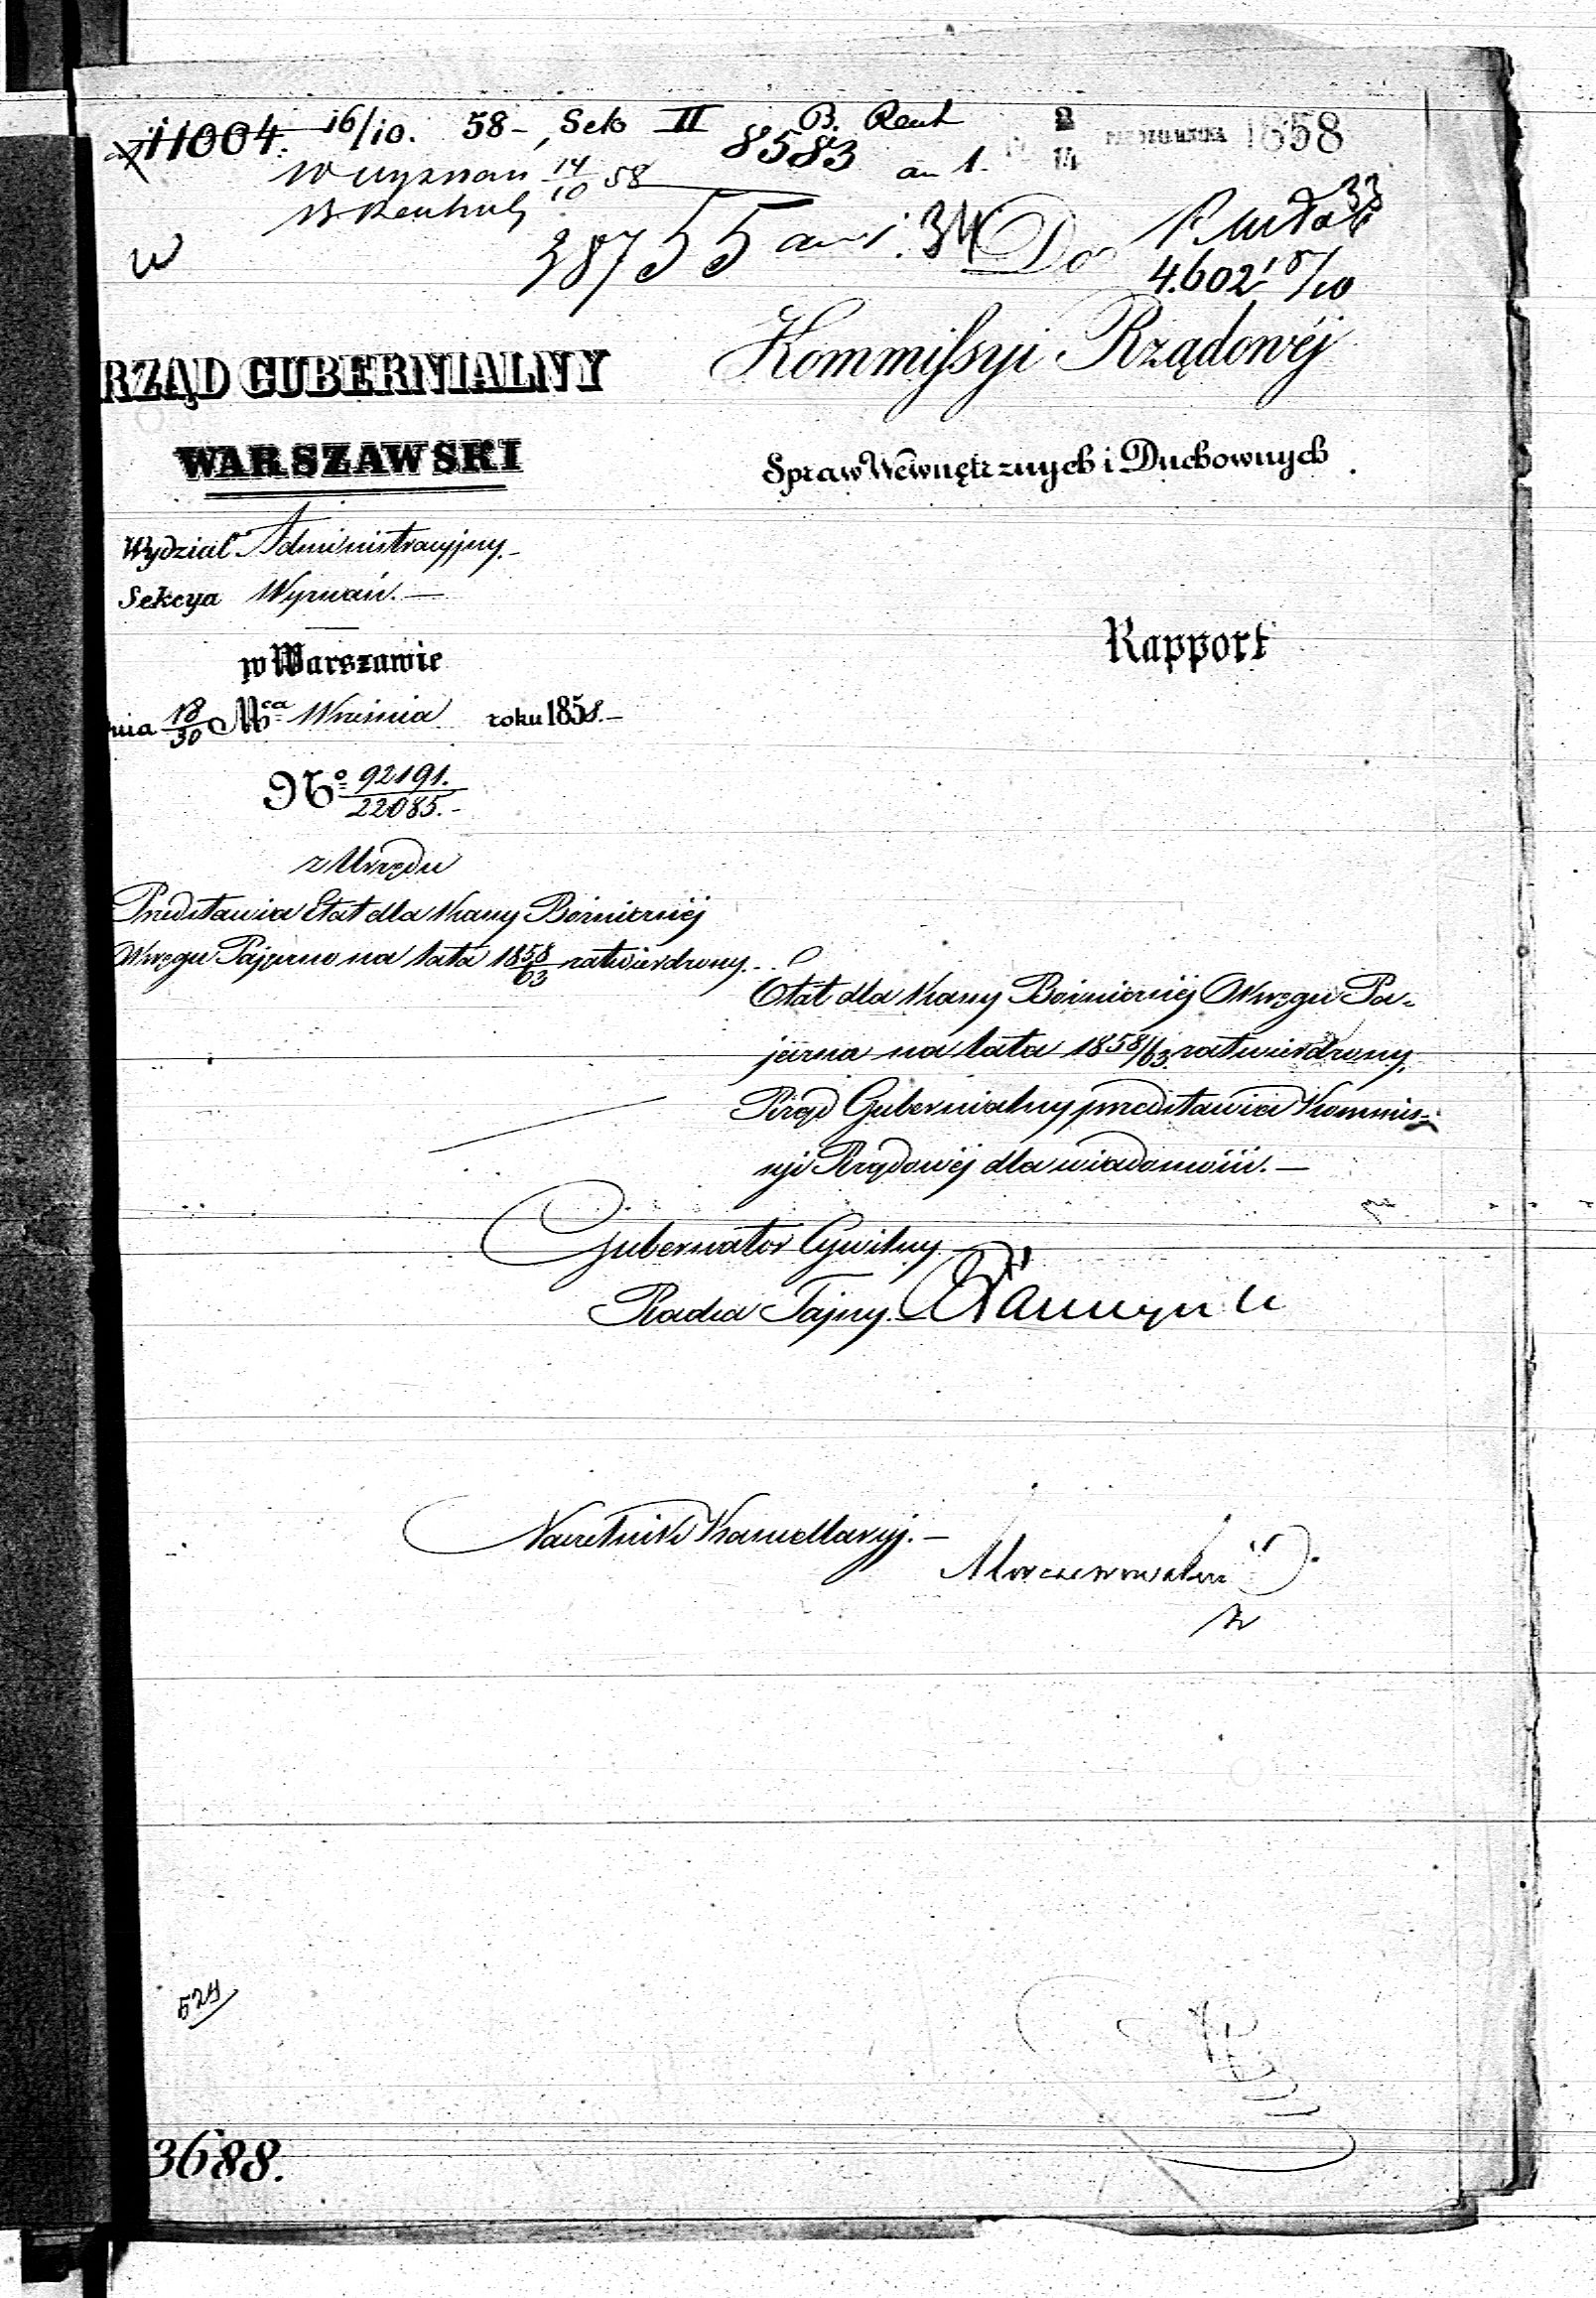 11004. 16/10. 58 -, Sek II B. Rent
8583 an 1. 2/14 PAZDZIERNIKA 1858
Wyznań 14/10 58
33
38755 an 1. 34 Do
W
4.602 15/10
Kommissyi Rządowéj
Spraw Wewnętrznych i Duchownych
RZĄD GUBERNIALNY
WARSZAWSKI
Wydział Administracyjny.-
Sekcya Wyznań.-
w Warszawie
dnia 18/30 Mca Września roku 1858.-
No 92191./22085.-
z Urzędu
Przedstawia Etat dla Kassy Bożniczéj
Okręgu Pajęczno na lata 1858/63 zatwierdzony.-
Rapport
Etat dla Kassy Bożniczéj Okręgu Pa-
jęczna na lata 1858/63. zatwierdzony,
Rząd Gubernialny przedstawia Kommis-
syi Rządowéj dla wiadomości.-
Gubernator Cywilny
Radca Tajny.
Naczelnik Kancellaryi.-
524
3688.